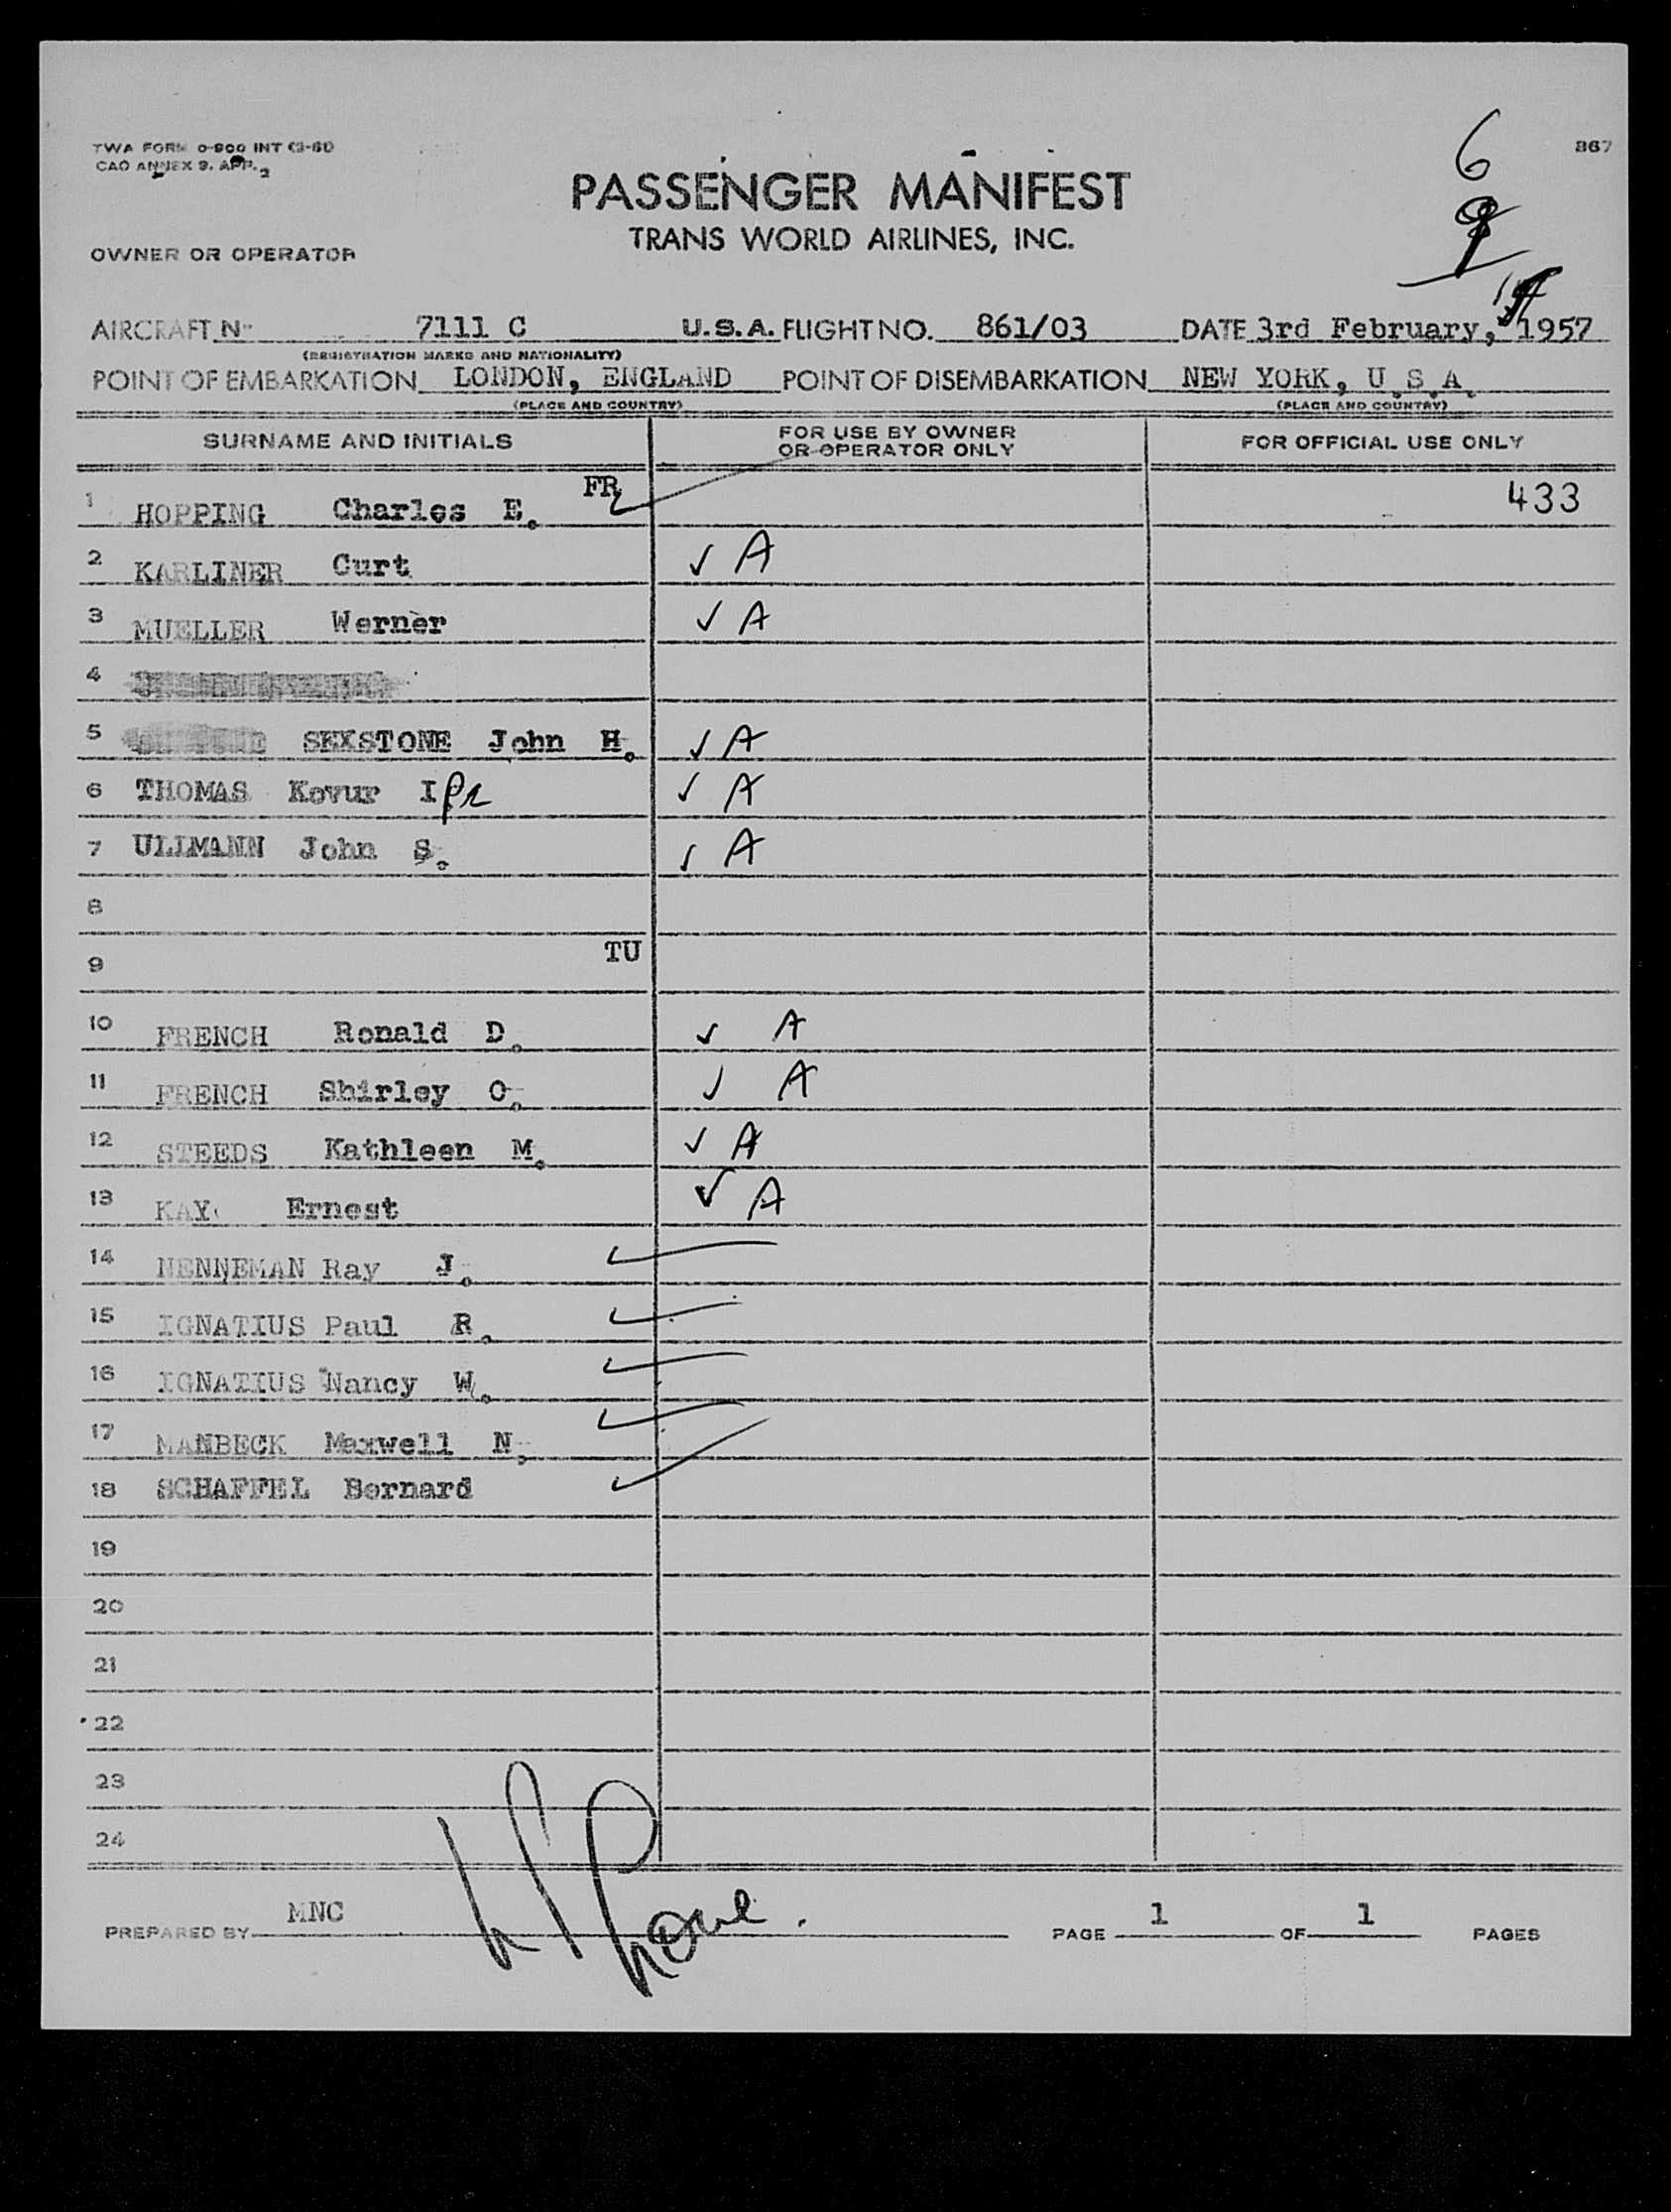 TWA FORM 0-900 INT (3-51)
CAO ANNEX 9. APP. 2
867
6
PASSENGER MANIFEST
TRANS WORLD AIRLINES, INC.
OWNER OR OPERATOR
AIRCRAFT N- 7111 C U.S.A. FLIGHT NO. 861/03 DATE 3rd February, 1957
(REGISTRATION MARKS AND NATIONALITY)
POINT OF EMBARKATION LONDON, ENGLAND POINT OF DISEMBARKATION NEW YORK, U.S.A.
(PLACE AND COUNTRY) (PLACE AND COUNTRY)
SURNAME AND INITIALS FOR USE BY OWNER OR OPERATOR ONLY FOR OFFICIAL USE ONLY
FR
1 HOPPING Charles E. 433
2 KARLINER Curt ✓ A
3 MUELLER Werner ✓ A
4
5 SEXSTONE John H. ✓ A
6 THOMAS Kovur I ✓ A
7 ULLMANN John S. ✓ A
8
9 TU
10 FRENCH Ronald D. ✓ A
11 FRENCH Shirley O. ✓ A
12 STEEDS Kathleen M. ✓ A
13 KAY Ernest ✓ A
14 NENNEMAN Ray J. ✓
15 IGNATIUS Paul R. ✓
16 IGNATIUS Nancy W. ✓
17 MANBECK Maxwell N. ✓
18 SCHAFFEL Bernard ✓
19
20
21
22
23
24
PREPARED BY MNC PAGE 1 OF 1 PAGES